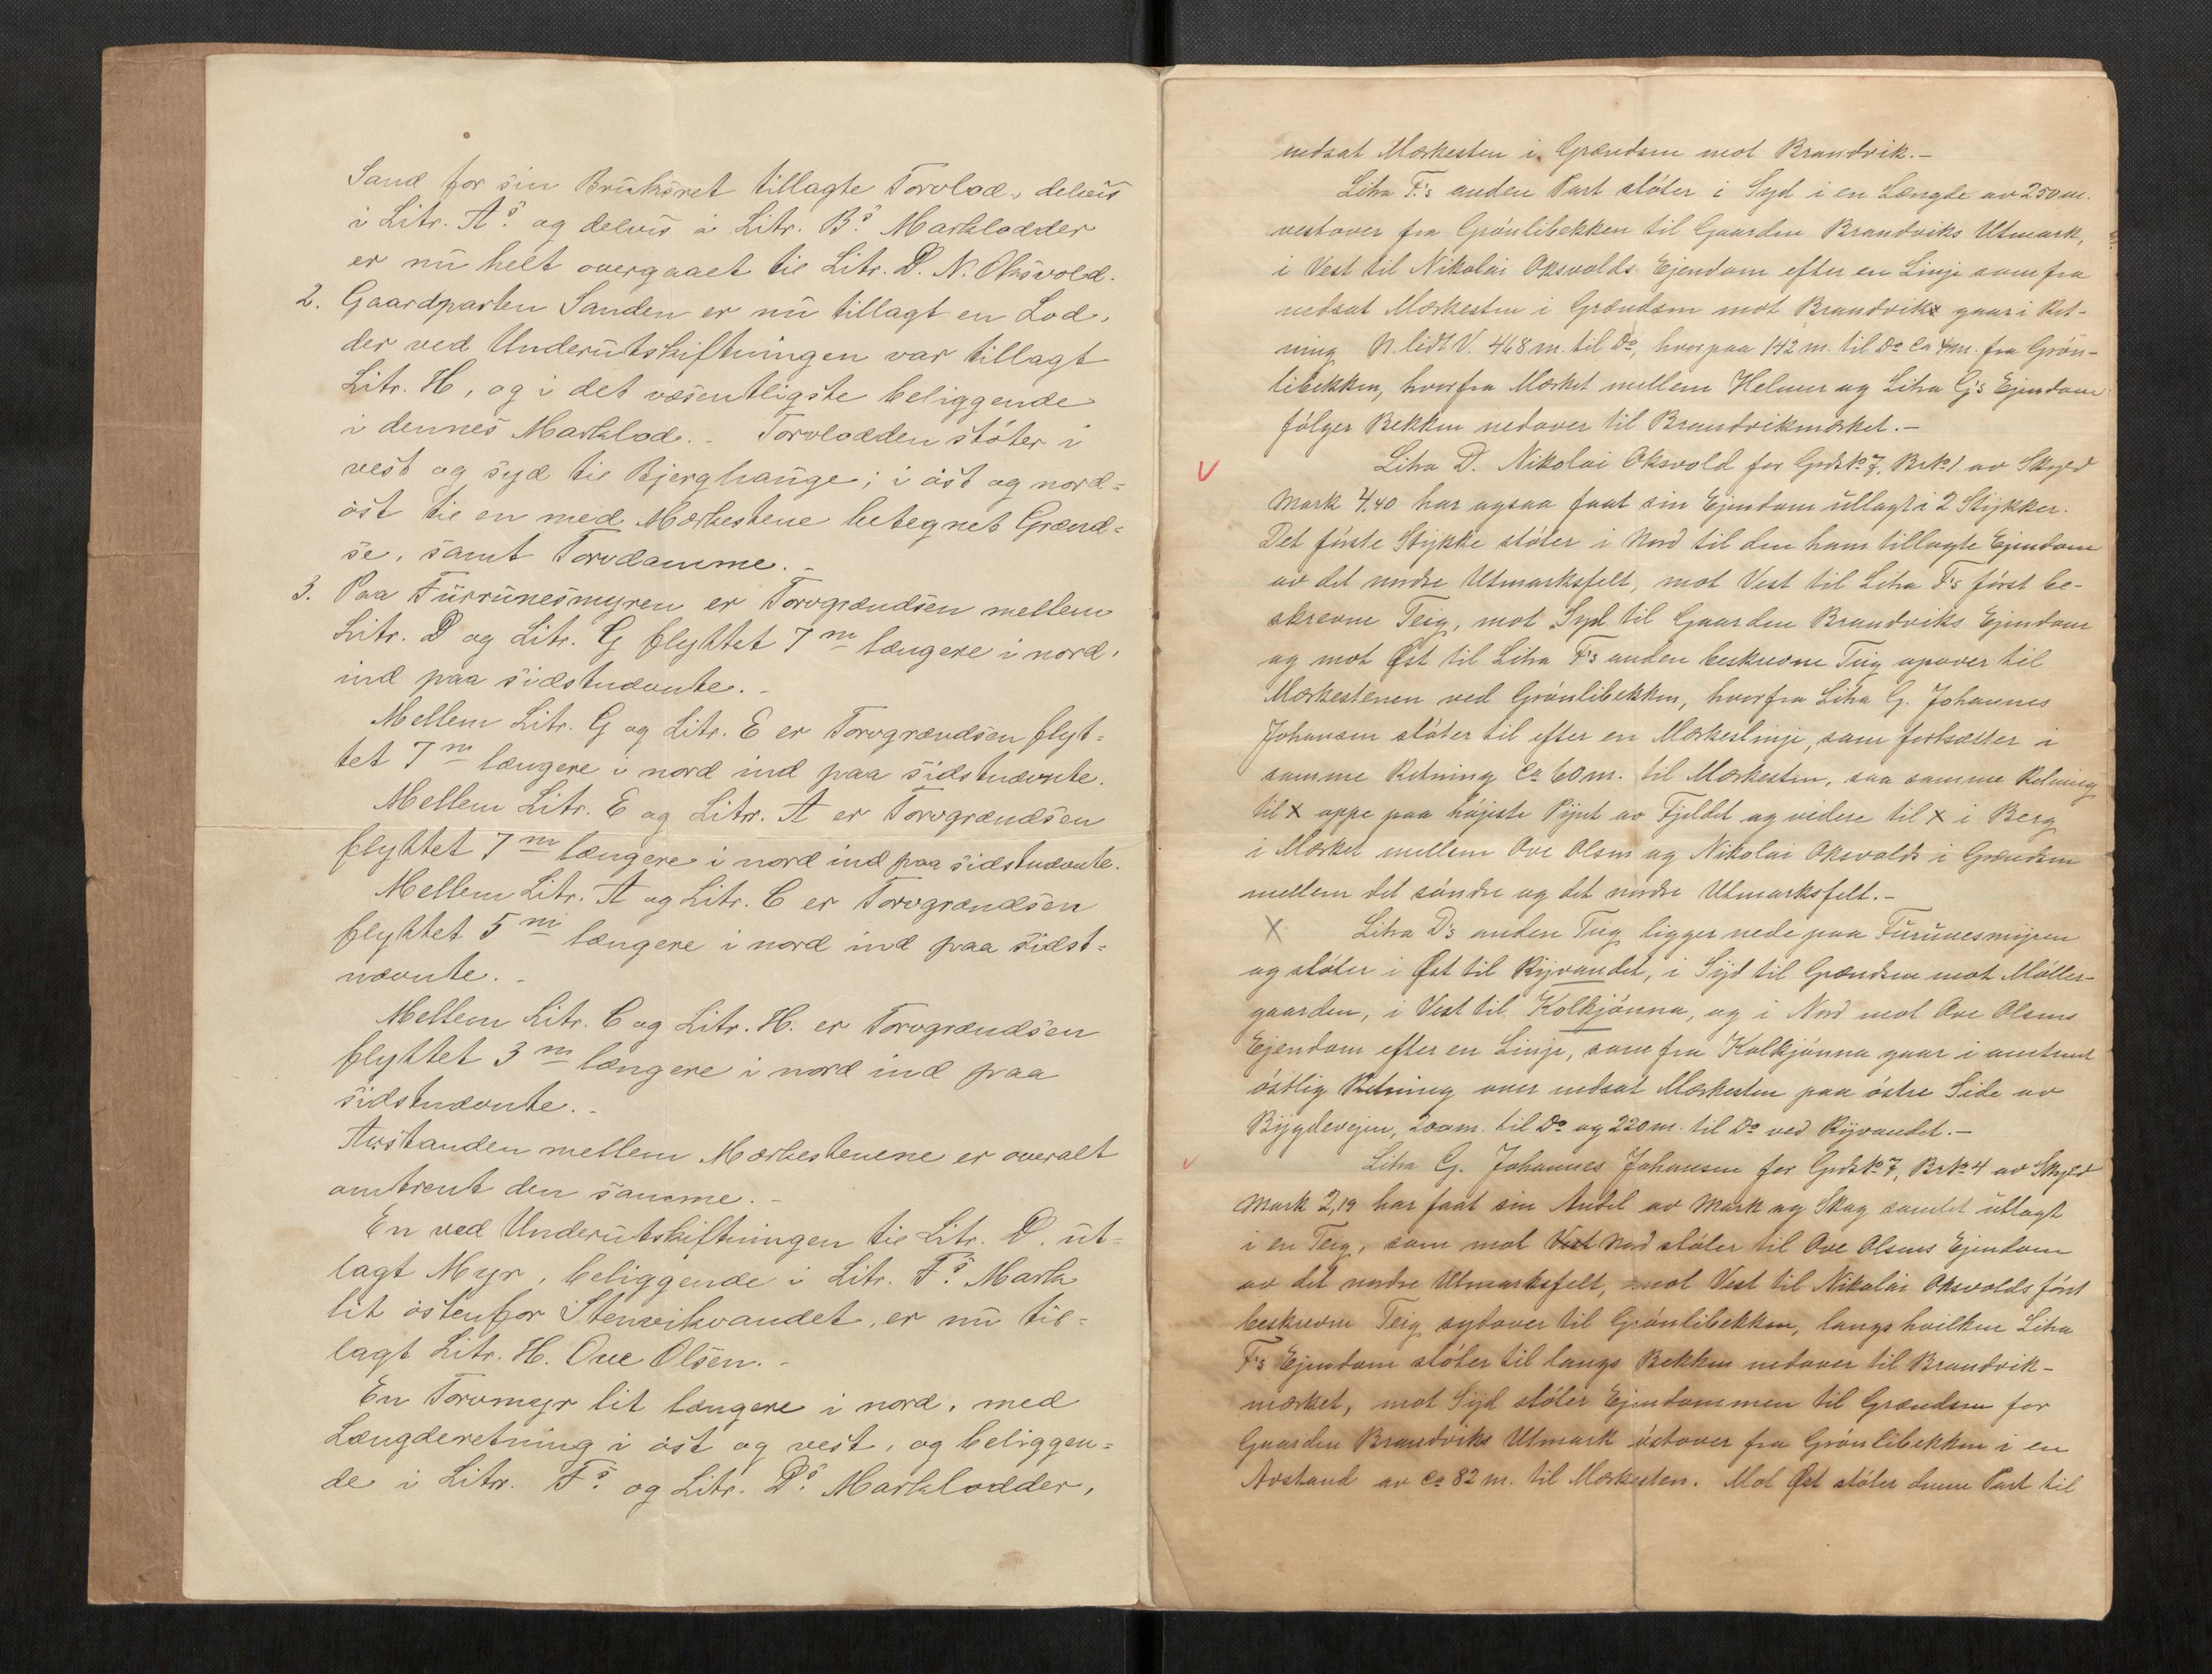 Sand for sin Bruksret tillagte Torvlod, delvis
i Litr. A's og delvis i Litr. B's Marklodder
er nu helt overgaaet til Litr. D. N. Oksvold.
2. Gaardparten Sanden er nu tillagt en Lod,
der ved Underutskiftningen var tillagt
Litr. H, og i det væsentligste beliggende
i dennes Marklod. - Torvlodden stöter i
vest og syd til Bjerghauge; i öst og nord=
öst til en med Mærkestene betegnet Grænd=
se, samt Torvdamme. -
3. Paa Furrunesmyren er Torvgrændsen mellem
Litr. D og Litr. G flyttet 7 m længere i nord,
ind paa sidstnævnte. -
Mellem Litr. G og Litr. E er Torvgrændsen flyt=
tet 7 m længere i nord ind paa sidstnævnte.
Mellem Litr. E og Litr. A er Torvgrændsen
flyttet 7 m længere i nord ind paa sidstnævnte.
Mellem Litr. A og Litr. C er Torvgrændsen
flyttet 5 m længere i nord ind paa sidst=
nævnte. -
Mellem Litr. C og Litr. H. er Torvgrændsen
flyttet 3 m længere i nord ind paa
sidstnævnte. -
Avstanden mellem Mærkestenene er overalt
omtrent den samme. -
En ved Underutskiftningen til Litr. D. ut=
lagt Myr, beliggende i Litr. F's Mark
lit östenfor Stenvikvandet, er nu til=
lagt Litr. H. Ove Olsen. -
En Torvmyr lit længere i nord, med
Længderetning i öst og vest, og beliggen=
de i Litr. F's og Litr. D's Marklodder,
nedsat Mærkesten i Grændsen mot Brandvik. -
Litra F.'s anden Part stöter i Syd i en Længde av 250 m.
vestover fra Grönlibekken til Gaarden Brandviks Utmark,
i Vest til Nikolai Oksvolds Ejendom efter en Linje som fra
nedsat Mærkesten i Grændsen mot Brandvik gaar i Ret-
ning N. lidt V. 468 m. til Do, hvorpaa 142 m. til Do ca 4 m. fra Grön-
libekken, hvorfra Mærket mellem Helmer og Litra G's Ejendom
fölger Bekken nedover til Brandvikmærket. -
V Litra D. Nikolai Oksvold for Grds No 7, Br No 1 av Skyld
Mark 4,40 har ogsaa faat sin Ejendom utlagt i 2 Stykker.
Det förste Stykke stöter i Nord til den ham tillagte Ejendom
av det nordre Utmarksfelt, mot Vest til Litra F's först be-
skrevne Teig, mot Syd til Gaarden Brandviks Ejendom
og mot Øst til Litra F's anden beskrevne Teig opover til
Mærkestenen ved Grönlibekken, hvorfra Litra G. Johannes
Johansen stöter til efter en Mærkeslinje, som fortsætter i
samme Retning ca 60 m. til Mærkesten, saa samme Retning
til X oppe paa höjeste Pynt av Fjeldet og videre til X i Berg
i Mærket mellem Ove Olsen og Nikolai Oksvolds i Grændsen
mellem det söndre og det nordre Utmarksfelt. -
X Litra D's anden Teig ligger nede paa Furunesmyren
og stöter i Øst til Ryvandet, i Syd til Grændsen mot Möller-
gaarden, i Vest til Kolkjönna, og i Nord mot Ove Olsens
Ejendom efter en Linje, som fra Kolkjönna gaar i omtrent
östlig Retning over nedsat Mærkesten paa östre Side av
Bygdevejen, 200 m. til Do og 220 m. til Do ved Ryvandet. -
V Litra G. Johannes Johansen for Grds No 7, Br No 4 av Skyld
Mark 2,19 har faat sin Andel av Mark og Skog samlet utlagt
i en Teig, som mot Vest Nord stöter til Ove Olsens Ejendom
av det nordre Utmarksfelt, mot Vest til Nikolai Oksvolds först
beskrevne Teig sydover til Grönlibekken, langs hvilken Litra
F's Ejendom stöter til langs Bekken nedover til Brandvik-
mærket, mot Syd stöter Ejendommen til Grændsen for
Gaarden Brandviks Utmark östover fra Grönlibekken i en
Avstand av ca 82 m. til Mærkesten. Mot Øst stöter denne Part til